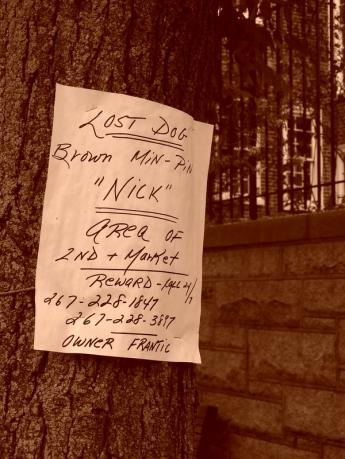 LOST DOG
Brown Min-Pin
"NICK"
AREA OF
2ND + Market
REWARD - CALL 24/7
267-228-1847
267-228-3897
OWNER FRANTIC